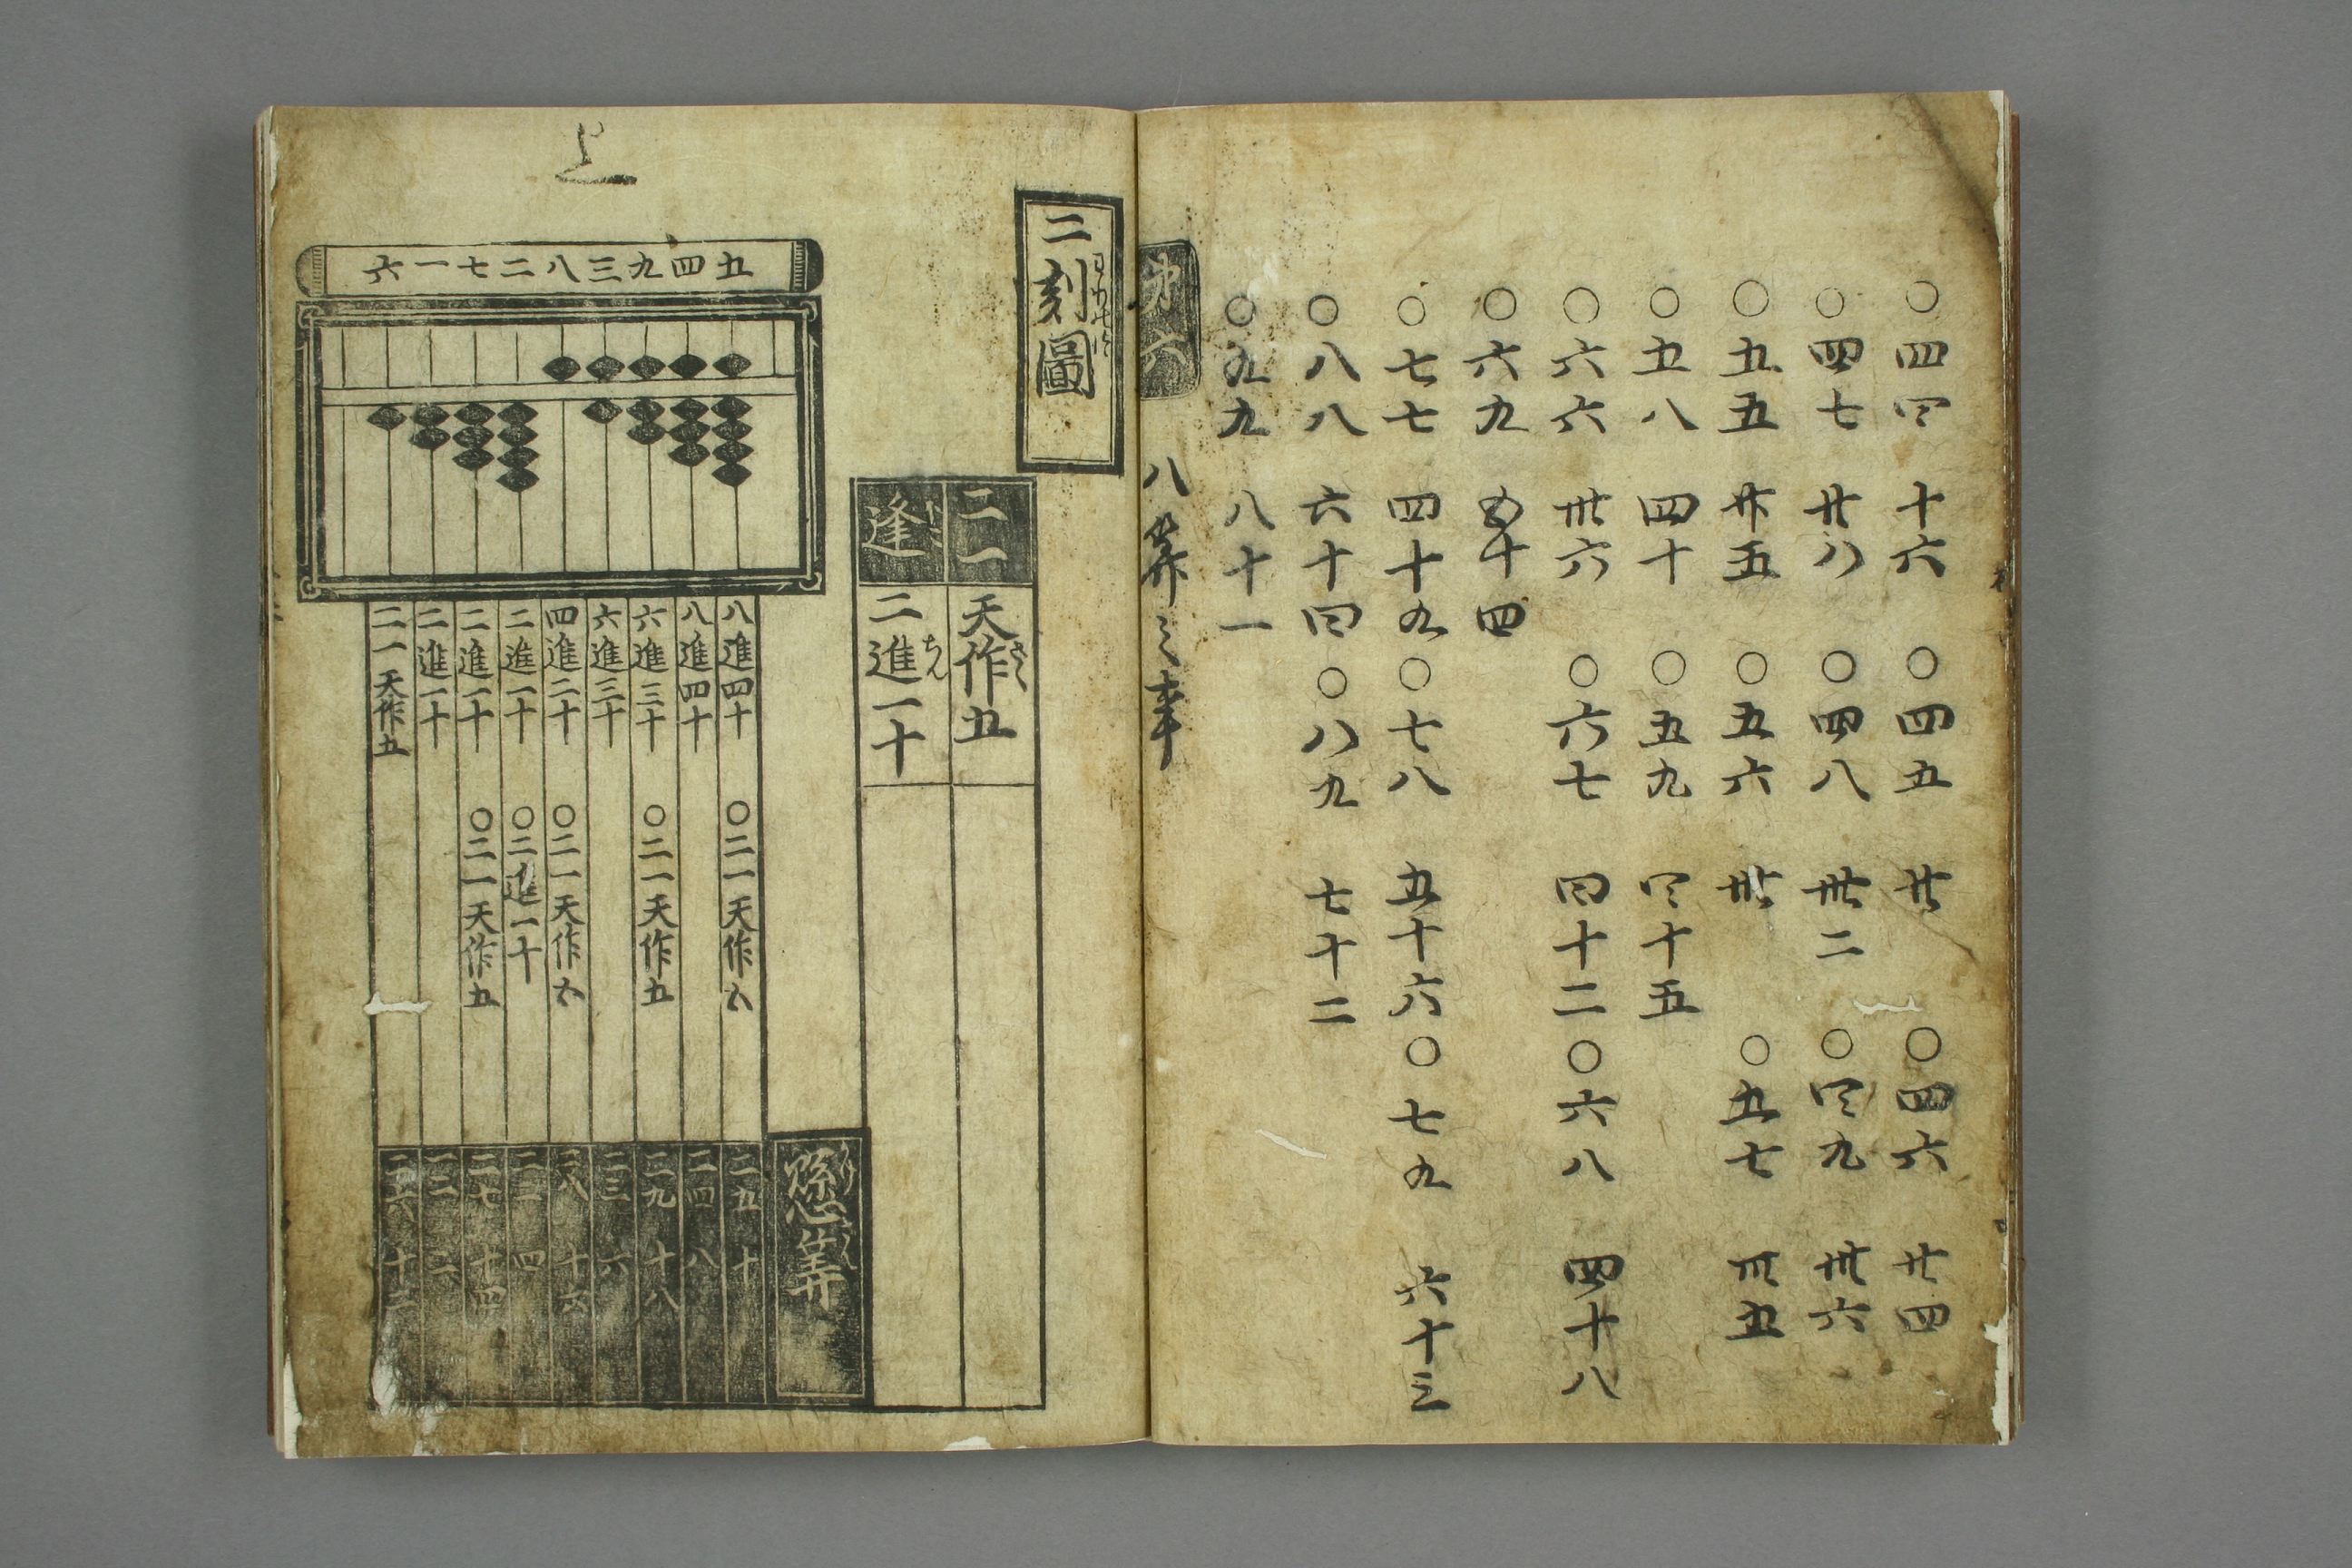 ○四四 十六 ○四五 廿 ○四六 廿四
○四七 廿八 ○四八 卅二 ○四九 卅六
○五五 廿五 ○五六 卅 ○五七 卅五
○五八 四十 ○五九 四十五
○六六 卅六 ○六七 四十二 ○六八 四十八
○六九 五十四
○七七 四十九 ○七八 五十六 ○七九 六十三
○八八 六十四 ○八九 七十二
○九九 八十一
第六 八算之事
二刻圖
二一 天作五
逢 二進一十
上
六一七二八三九四五
八進四十 ○二一天作五
八進四十
六進三十 ○二一天作五
六進三十
四進二十 ○二一天作五
二進一十 ○二進一十
二進一十 ○二一天作五
二進一十
二一天作五
懸算
二五 十
二四 八
二九 十八
二三 六
二八 十六
二二 四
二七 十四
二一 二
二六 十二